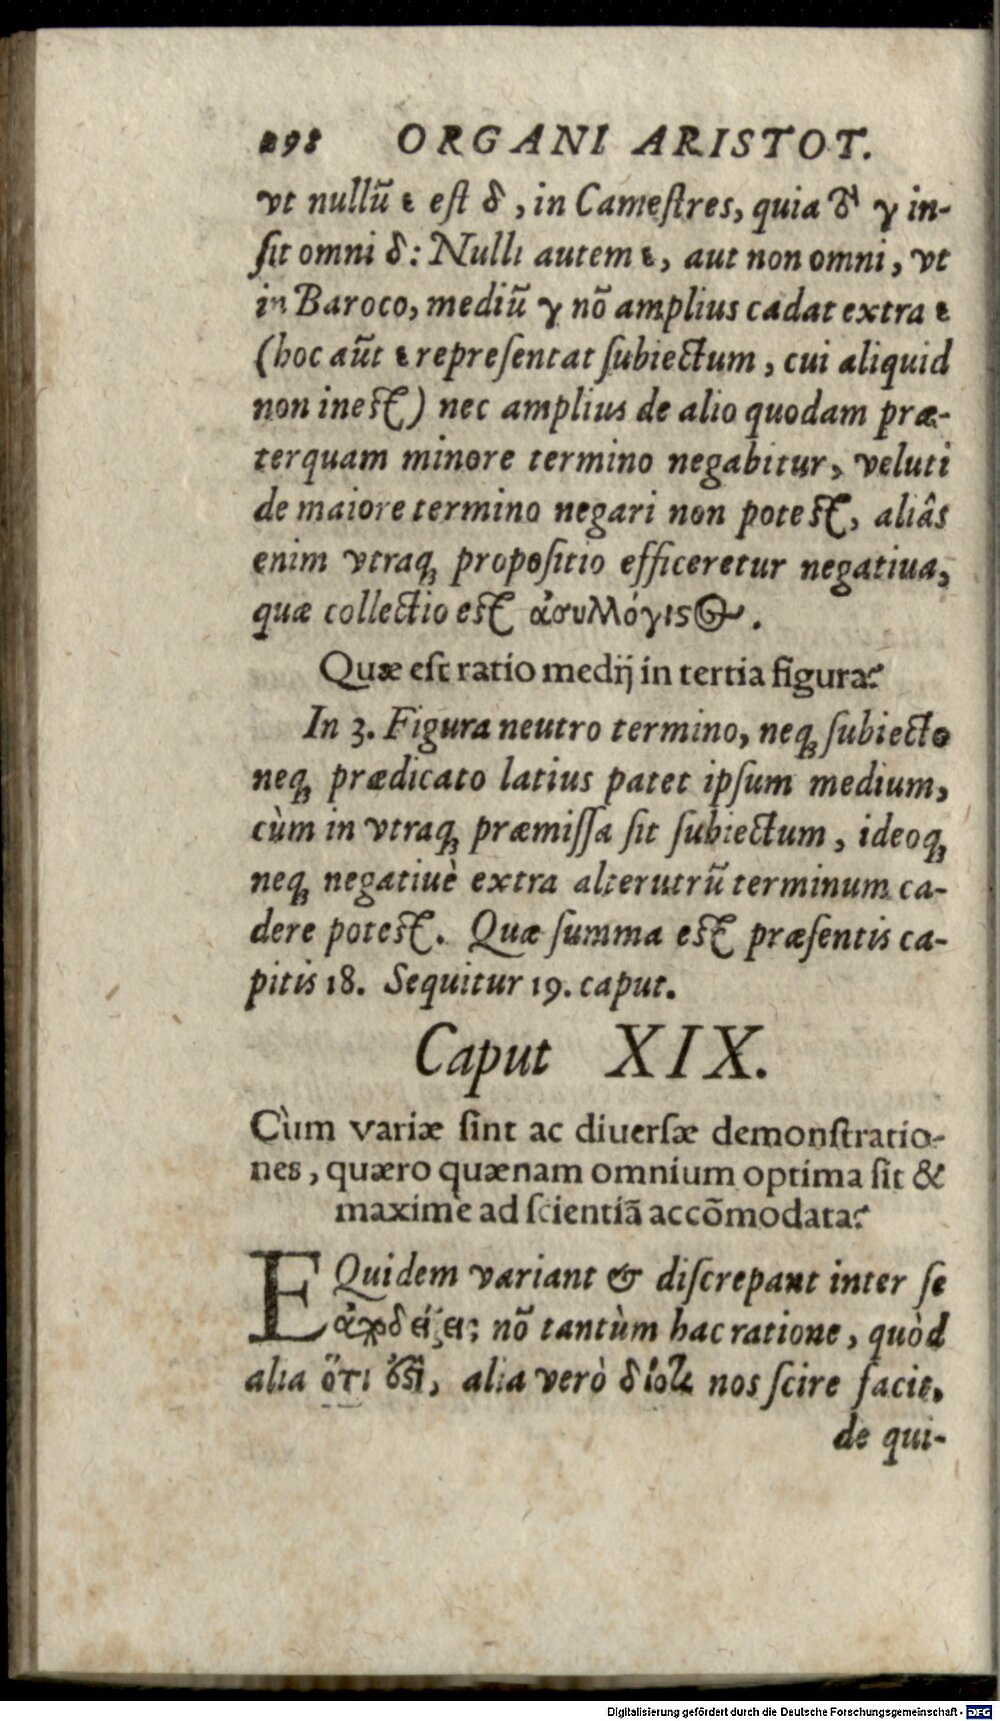 298 ORGANI ARISTOT.
vt nullū ε est δ, in Camestres, quia τὸ γ in-
sit omni δ: Nulli autem ε, aut non omni, vt
in Baroco, mediū γ nō amplius cadat extra ε
(hoc aūt ε repræsentat subiectum, cui aliquid
non inest) nec amplius de alio quodam præ-
terquam minore termino negabitur, veluti
de maiore termino negari non potest, aliâs
enim vtraq; propositio efficeretur negatiua,
quæ collectio est ἀσυλλόγιστος.
Quæ est ratio medij in tertia figura?
In 3. Figura neutro termino, neq; subiecto
neq; prædicato latius patet ipsum medium,
cùm in vtraq; præmissa sit subiectum, ideoq;
neq; negatiuè extra alterutrū terminum ca-
dere potest. Quæ summa est præsentis ca-
pitis 18. Sequitur 19. caput.
Caput XIX.
Cùm variæ sint ac diuersæ demonstratio-
nes, quæro quænam omnium optima sit &
maximè ad scientiã accõmodata?
EQuidem variant & discrepant inter se
ἀποδείξεις nō tantùm hac ratione, quòd
alia ὅτι ἐστὶ, alia verò διότι nos scire facit,
de qui-
Digitalisierung gefördert durch die Deutsche Forschungsgemeinschaft - DFG